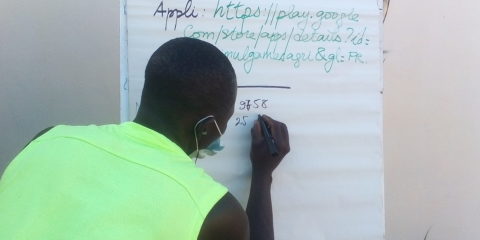 Appli : https://play.google
Com/store/apps/details?id=
&gl=FR.
9758
25